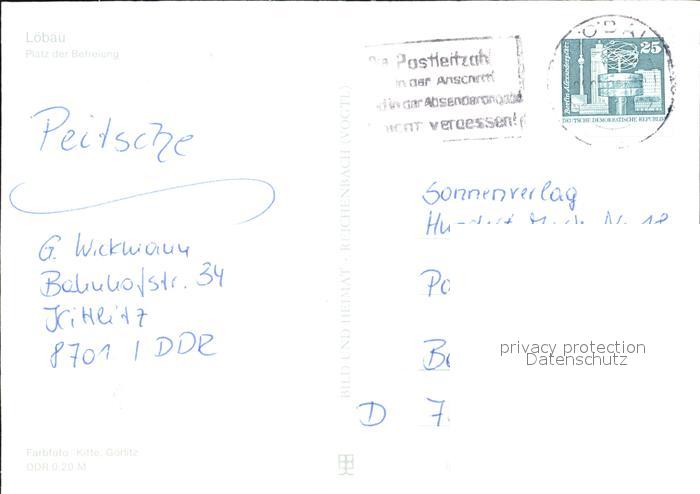 Löbau
Platz der Befreiung
Postleitzahl
in der Anschrift
in der Absenderangabe
nicht vergessen!
25
Berlin, Alexanderplatz
DEUTSCHE DEMOKRATISCHE REPUBLIK
Peitsche
G. Wickmann
Bahnhofstr. 34
Kittlitz
8701 / DDR
BILD UND HEIMAT · REICHENBACH (VOGTL)
Sonnenverlag
Po
Be
D 7
privacy protection
Datenschutz
Farbfoto: Kitte, Görlitz
DDR 0,20 M